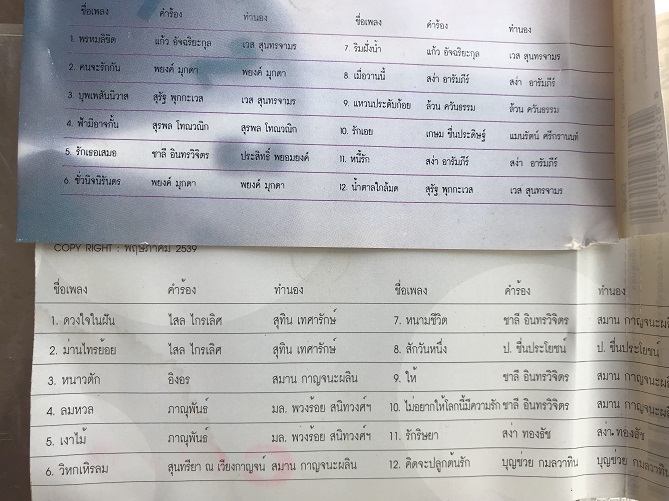 ชื่อเพลง คำร้อง ทำนอง ชื่อเพลง คำร้อง ทำนอง
1. พรหมลิขิต แก้ว อัจฉริยะกุล เวส สุนทรจามร 7. ริมฝั่งน้ำ แก้ว อัจฉริยะกุล เวส สุนทรจามร
2. คนจะรักกัน พยงค์ มุกดา พยงค์ มุกดา 8. เมื่อวานนี้ สง่า อารัมภีร์ สง่า อารัมภีร์
3. บุพเพสันนิวาส สุรัฐ พุกกะเวส เวส สุนทรจามร 9. แหวนประดับก้อย ล้วน ควันธรรม ล้วน ควันธรรม
4. ฟ้ามิอาจกั้น สุรพล โทณวณิก สุรพล โทณวณิก 10. รักเอย เกษม ชื่นประดิษฐ์ แมนรัตน์ ศรีกรานนท์
5. รักเธอเสมอ ชาลี อินทรวิจิตร ประสิทธิ์ พยอมยงค์ 11. หนี้รัก สง่า อารัมภีร์ สง่า อารัมภีร์
6. ชั่วนิจนิรันดร พยงค์ มุกดา พยงค์ มุกดา 12. น้ำตาลใกล้มด สุรัฐ พุกกะเวส เวส สุนทรจามร
COPY RIGHT : พฤษภาคม 2539
ชื่อเพลง คำร้อง ทำนอง ชื่อเพลง คำร้อง ทำนอง
1. ดวงใจในฝัน ไสล ไกรเลิศ สุทิน เทศารักษ์ 7. หนามชีวิต ชาลี อินทรวิจิตร สมาน กาญจนะผลิ
2. ม่านไทรย้อย ไสล ไกรเลิศ สุทิน เทศารักษ์ 8. สักวันหนึ่ง ป. ชื่นประโยชน์ ป. ชื่นประโยชน์
3. หนาวตัก อิงอร สมาน กาญจนะผลิน 9. ให้ ชาลี อินทรวิจิตร สมาน กาญจนะผลิ
4. ลมหวล ภาณุพันธ์ มล. พวงร้อย สนิทวงศ์ฯ 10. ไม่อยากให้โลกนี้มีความรัก ชาลี อินทรวิจิตร สมาน กาญจนะผลิ
5. เงาไม้ ภาณุพันธ์ มล. พวงร้อย สนิทวงศ์ฯ 11. รักริษยา สง่า ทองธัช สง่า ทองธัช
6. วิหกเหิรลม สุนทรียา ณ เวียงกาญจน์ สมาน กาญจนะผลิน 12. คิดจะปลูกต้นรัก บุญช่วย กมลวาทิน บุญช่วย กมลวาทิน